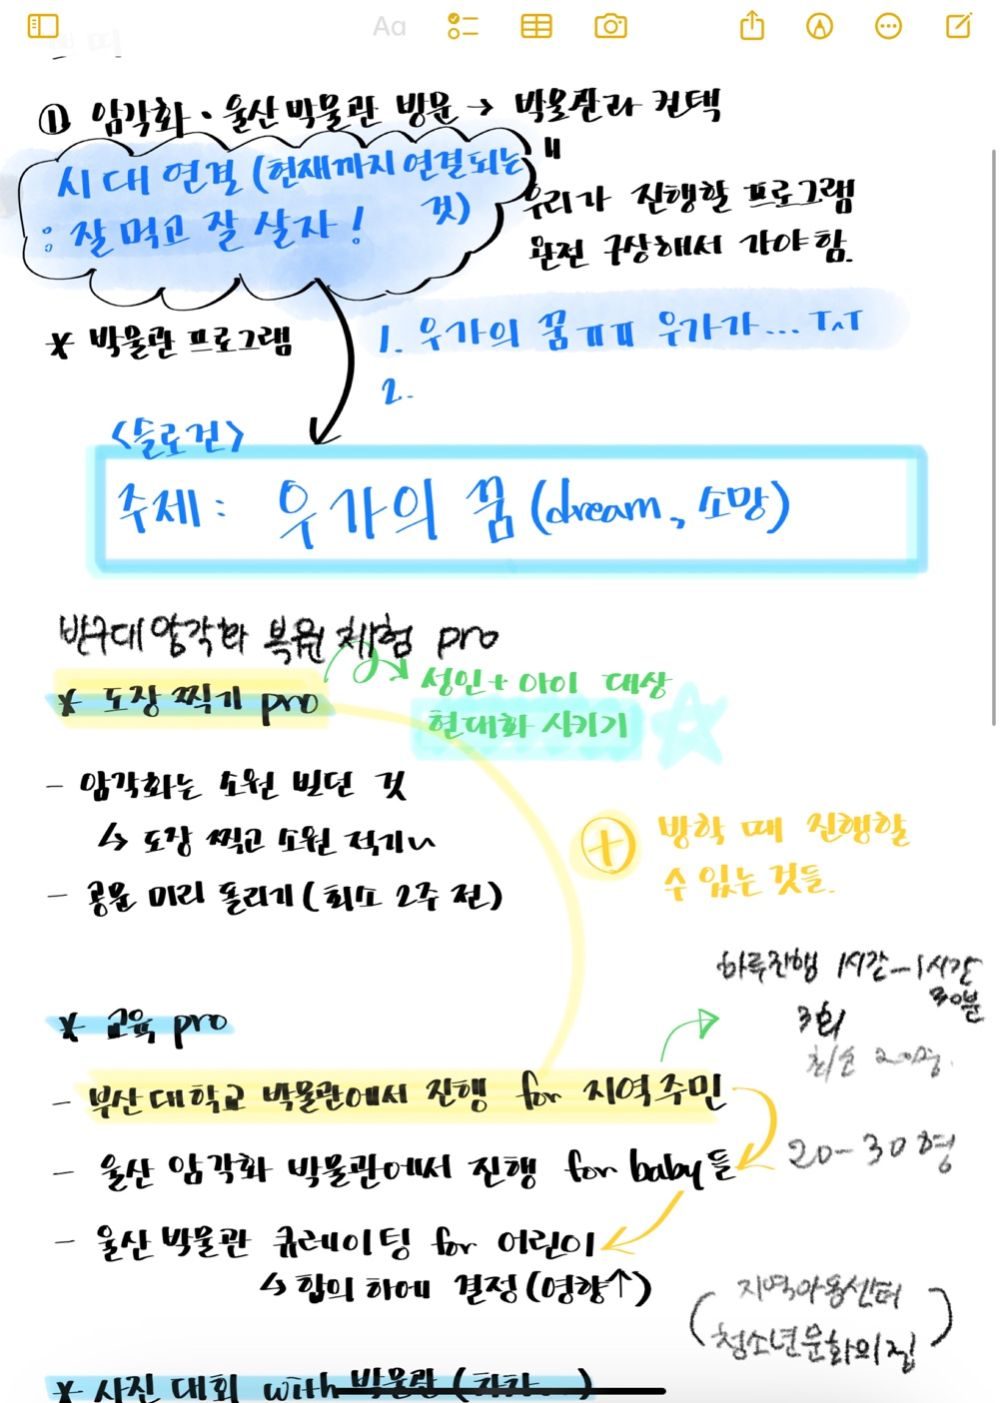 Aa
① 암각화 · 울산박물관 방문 → 박물관과 컨택
시대 연결 (현재까지 연결되는 것)
: 잘 먹고 잘 살자!
"
우리가 진행할 프로그램
완전 구상해서 가야함.
* 박물관 프로그램
1. 우가의 꿈 ㅠㅠ 우가가... T^T
2.
<슬로건>
주제: 우가의 꿈 (dream, 소망)
반구대 암각화 복원 체험 pro
* 도장 찍기 pro
성인+아이 대상
현대화 시키기
- 암각화는 소원 빌던 것
↳ 도장 찍고 소원 적기
- 공문 미리 돌리기 (최소 2주 전)
+ 방학 때 진행할
수 있는 것들.
* 교육 pro
하루진행 1시간-1시간
30분
3회
최소 20명.
- 부산대학교 박물관에서 진행 for 지역주민
- 울산 암각화 박물관에서 진행 for baby들
20-30명
- 울산박물관 큐레이팅 for 어린이
↳ 합의 하에 결정 (영향↑)
(지역아동센터
청소년문화의집)
* 사진 대회 with 박물관 (차차...)